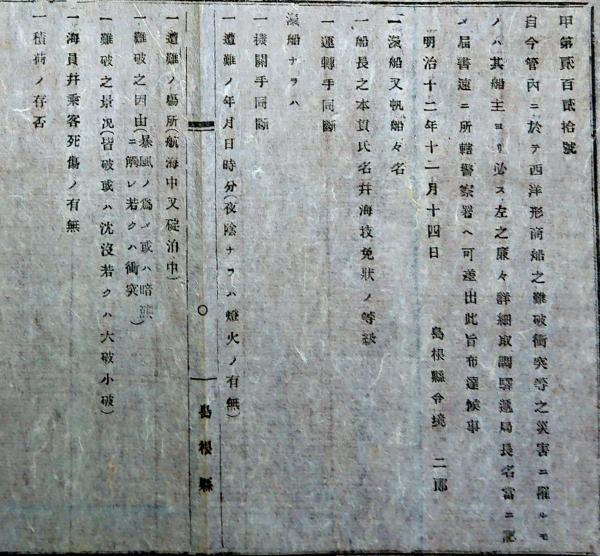 甲第貳百貳拾號
自今管内ニ於テ西洋形商船之難破衝突等之災害ニ罹ルモ
ノハ其船主ヨリ必ス左之廉々詳細取調驛遞局長名當ニ記
メ屆書速ニ所轄警察署ヘ可差出此旨布達候事
明治十二年十二月十四日
島根縣令境二郎
一滊船又帆船々名
一船長之本貫氏名幷海技免狀ノ等級
一運轉手同斷
滊船ナラハ
一機關手同斷
一遭難ノ年月日時分(夜陰ナラハ燈火ノ有無)
島根縣
一遭難ノ塲所(航海中又碇泊中)
一難破之因由(暴風ノ爲メ或ハ暗礁ニ觸レ若クハ衝突)
一難破之景况(皆破或ハ沈沒若クハ大破小破)
一海員幷乘客死傷ノ有無
一積荷ノ存否